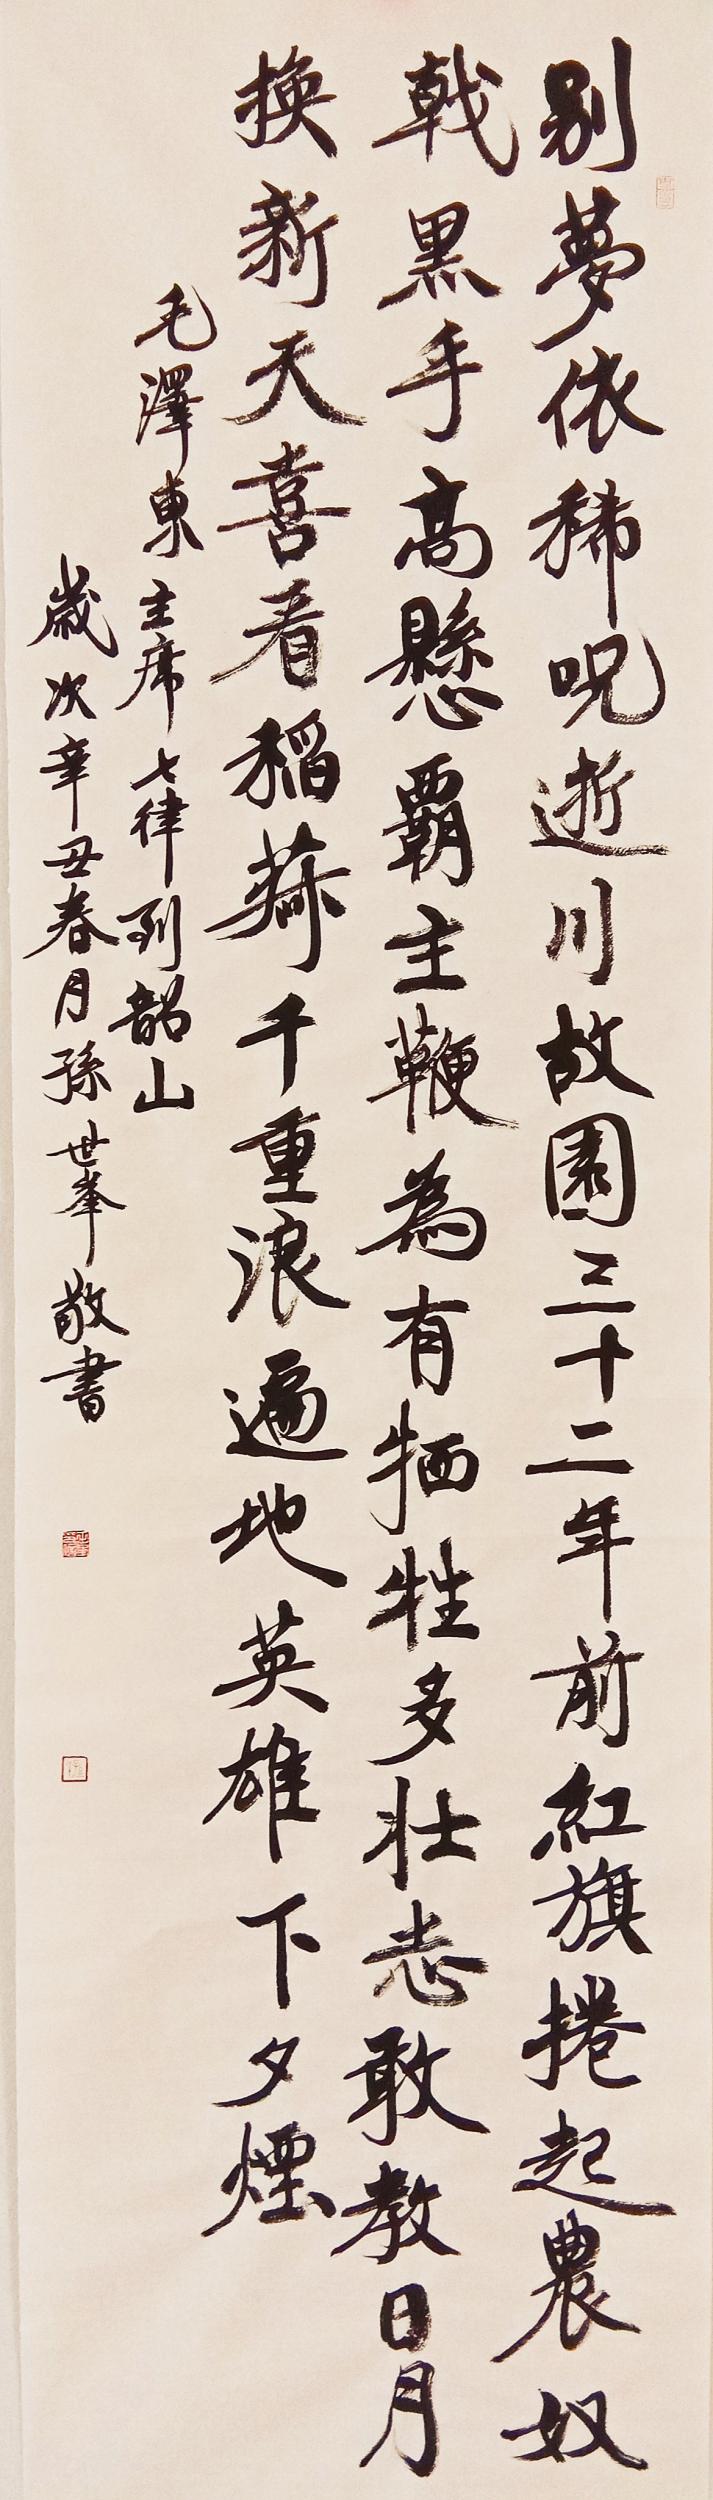 别夢依稀呪逝川故園三十二年前紅旗捲起農奴
戟黑手高懸霸主鞭為有牺牲多壮志敢教日月
换新天喜看稻菽千重浪遍地英雄下夕煙
毛澤東主席七律到韶山
歲次辛丑春月孫世峯敬書